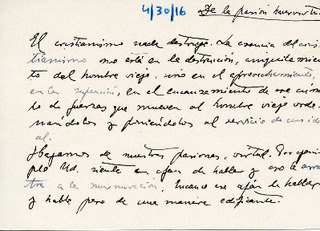 4/30/16 De la pasión
El cristianismo nada destruye. La esencia del cris
tianismo no está en la destrucción, aniquilamien
to del hombre viejo, sino en el aprovechamiento,
en la superación, en el encauzamiento de ese cúmu
lo de fuerzas que mueven al hombre viejo orde
nándolas y poniéndolas al servicio de un ide
al.
Hagamos de nuestras pasiones, virtud. Por ejem
plo Ud. siente un afán de hablar y eso le arras
tra a la murmuración. Encauce ese afán de hablar
y hable pero de una manera edificante.